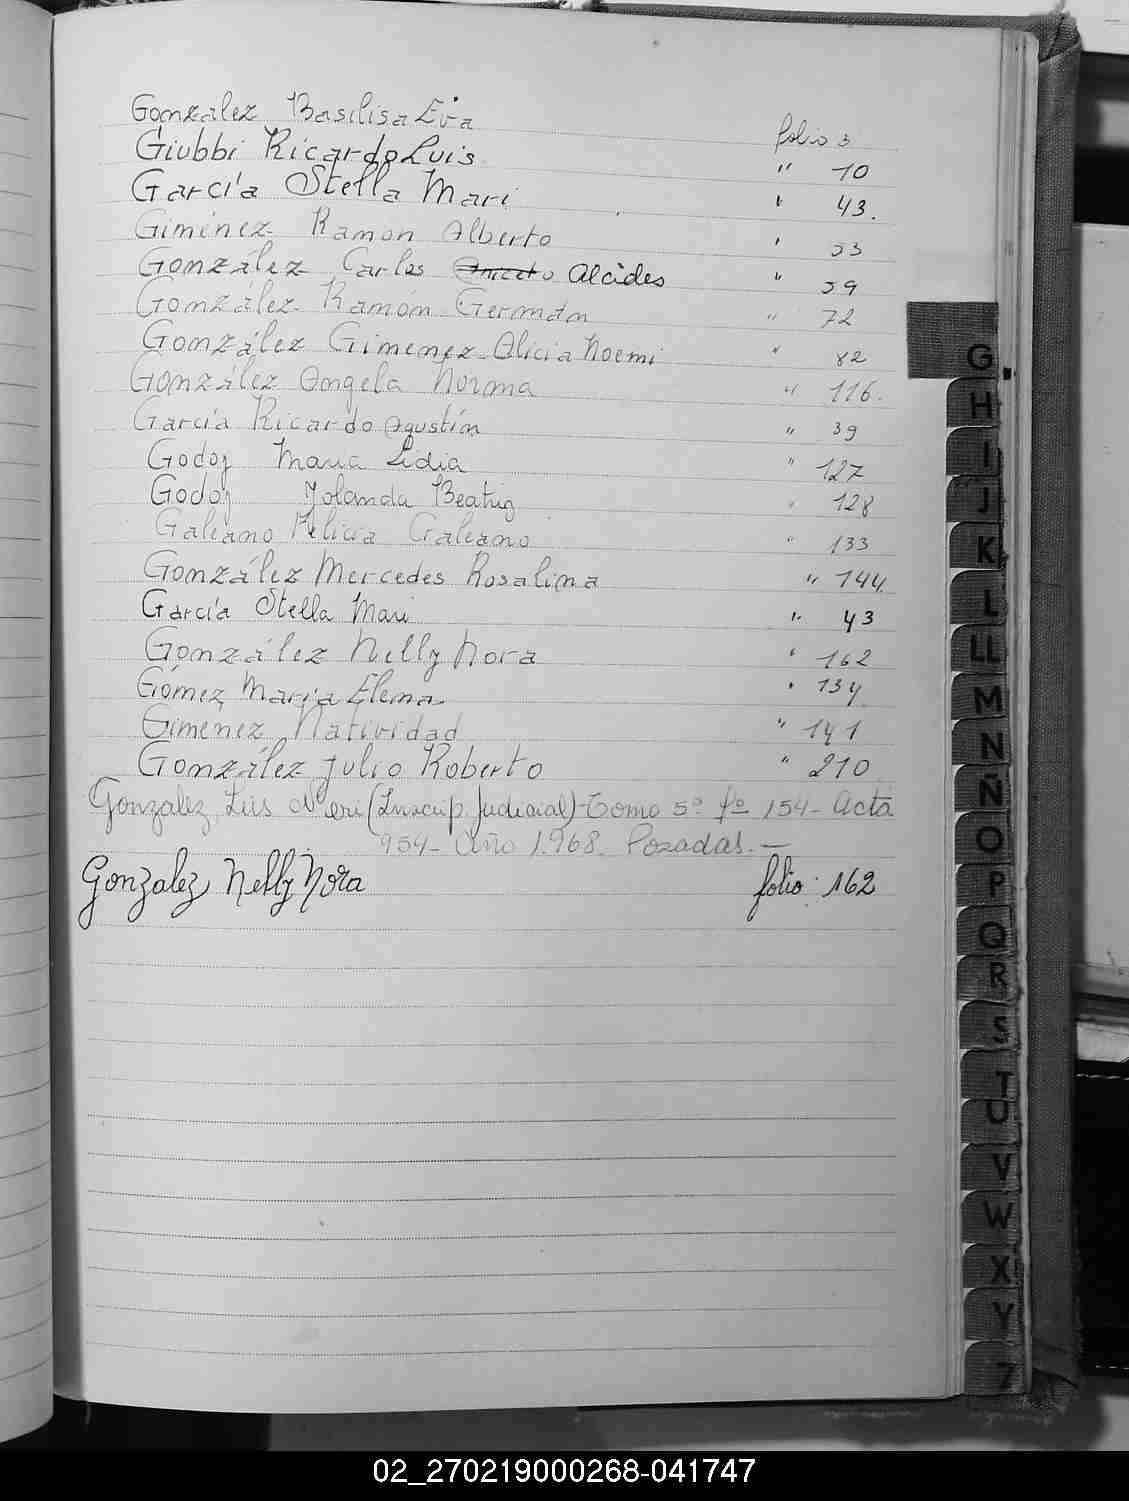 González Basilisa Eva folio 3
Giubbi Ricardo Luis " 10
García Stella Mari " 43.
Giménez Ramón Alberto " 53
González Carlos Aniceto Alcides " 59
González Ramón Germán " 72
González Gimenez Alicia Noemi " 82
González Angela Norma " 116.
García Ricardo Agustín " 39
Godoy Maria Lidia " 127
Godoy Yolanda Beatriz " 128
Galeano Felicia Galeano " 133
González Mercedes Rosalina " 144
García Stella Mari " 43
González Nelly Nora " 162
Gómez María Elena " 134
Gimenez Natividad " 141
González Julio Roberto " 210
Gonzalez, Luis Neri (Inscrip. Judicial) - Tomo 5º fº 154 - Acta
954 - Año 1.968. Posadas. —
Gonzalez, Nelly Nora folio: 162
G
H
I
J
K
L
LL
M
N
Ñ
O
P
Q
R
S
T
U
V
W
X
Y
Z
02_270219000268-041747